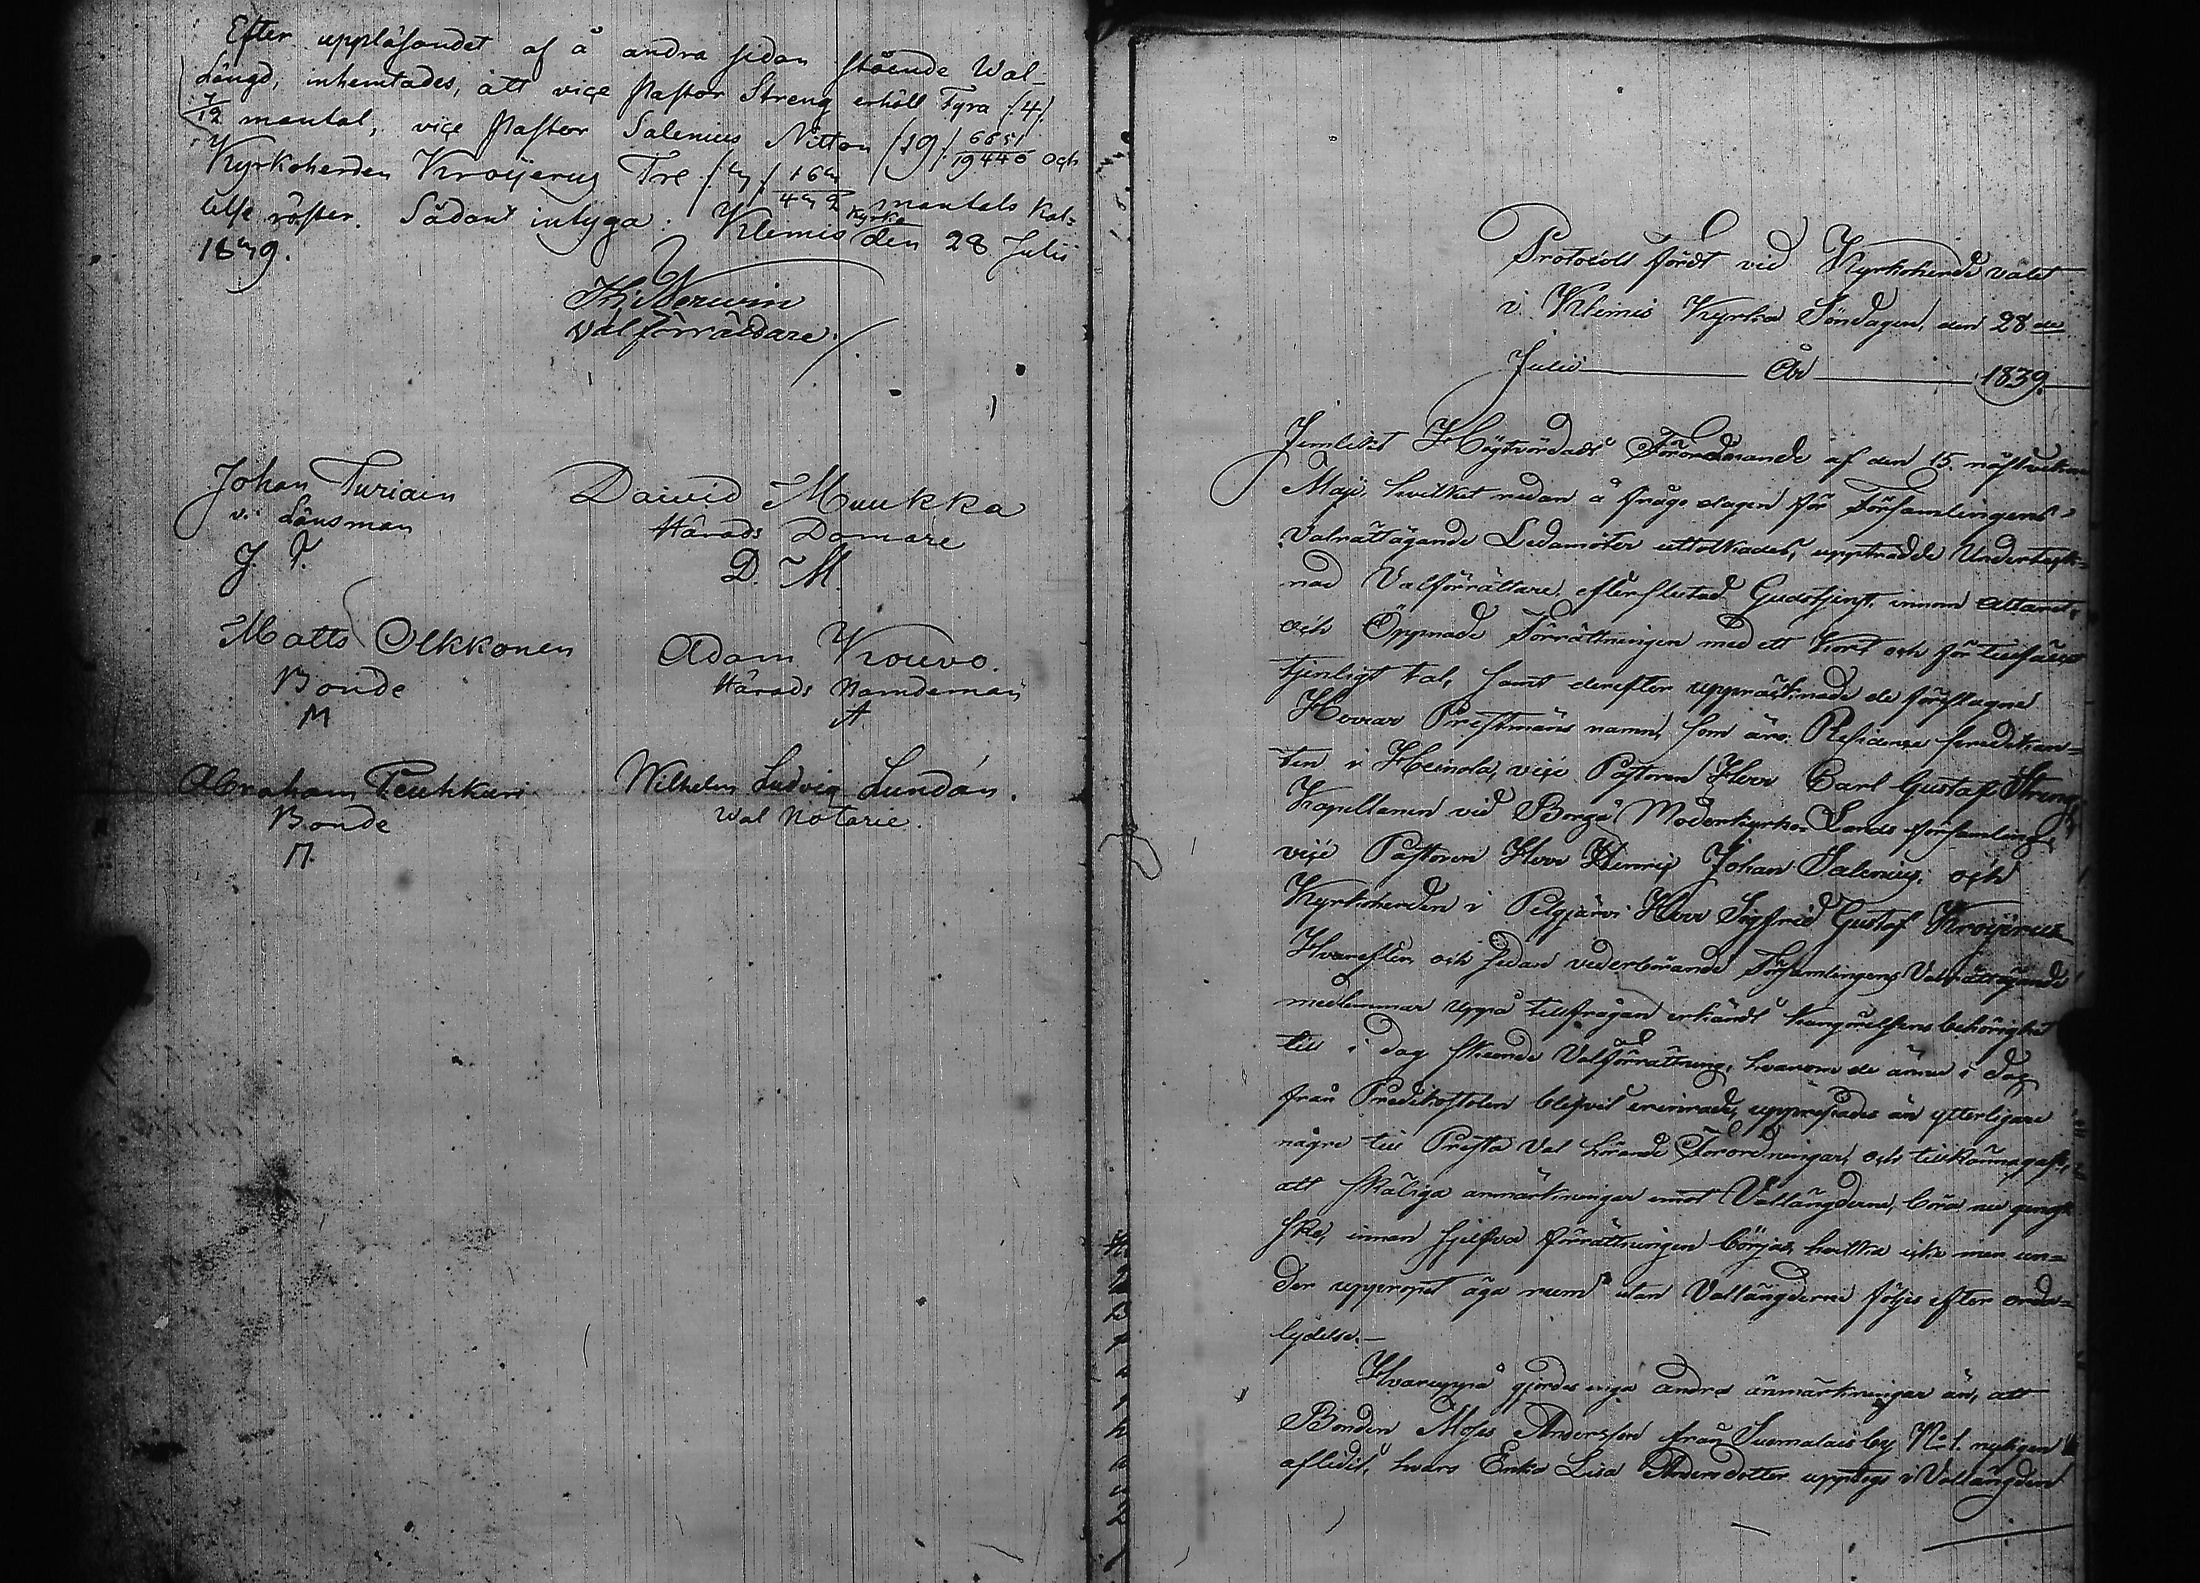 Efter uppläsandet af å andra sidan stående Wal-
Längd, inhemtades, att viçe Pastor Streng erhöll Fyra /:4:/
7/12 mantal, viçe Pastor Salenius Nitton /:19:/ 6651/19440 och
Kyrkoherden Kroijerus Tre /:3:/ mantals Kal-
lelse röster. Sådant intyga. Klemis Kyrka den 28 Julii
1839.
Valförrättare.
Johan Turiain
v. Länsman
J. T.
David Muukka
Härads Domare
D. M.
Matts Olkkonen
Bonde
M
Adam Kouvo.
Härads Nämndeman
A
Abraham Peuhkuri
Bonde
П.
Wilhelm Ludvig Lundán.
Wal Notarie.
Protocoll fördt vid Kyrkoherde valet
i Klemis Kyrka Söndagen, den 28de
Julii År 1839.
Jemlikt Högvördads Förordnande af den 15. nästvekne
Maji, hvilket redan å fråge dagen för Församlingens
Valrättägande Ledamöter uttolkades, uppträdde Underteck=
nad Valförrättare, efter slutad Gudstjenst, innom Altaret,
och Öppnade Förrättningen med ett kort och för tillfället
tjenligt tal, samt derefter uppräknade de föreslagne
Herrar Prestmäns namn, som äro: Residençe Predikan=
ten i Heinola, viçe Pastoren Herr Carl Gustaf Streng,
Kapellanen vid Borgå Moderkyrko Lands församling,
viçe Pastoren Herr Henriç Johan Salenius, och
Kyrkoherden i Pelgjärvi Herr Sigfrid Gustaf Kroijerus
Hvarefter, och sedan vederbörande Församlingens Valrättägande
medlemmar uppå tillfrågan erkändt kungörelsens behörighet
till i dag skeende Valförrättning, hvarom de ännu i dag
från Predikostolen blifvit erinrade, upplästes än ytterligare
några till Presta Val hörande Förordningar, och tillkännagafs,
att skäliga anmärkningar emot Vallängderna, böra nu genast
ske, innan sjelfva förrättningen börjas, hvilka icke mer un=
der uppropet äga rum utan Vallängderna följes efter orda=
lydelse.—
Hvaruppå gjordes inga andra anmärkningar än, att
Bonden Moses Andersson från Suomalais by No 1. nyligen
aflidit, hvars Enka Lisa Andersdotter upptogs i Vallängden